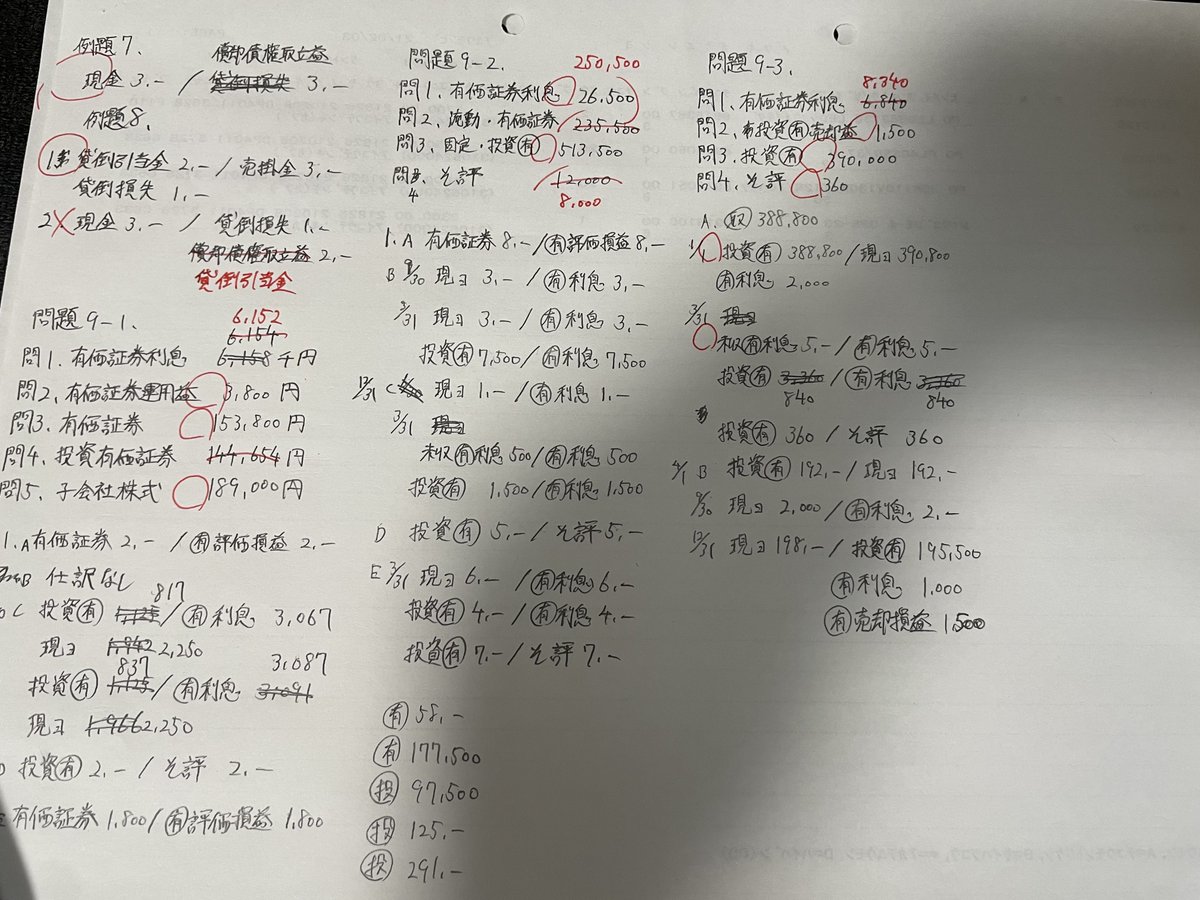 例題7、
償却債権取立益
現金 3.- / 貸倒損失 3.-
例題8、
1 貸倒引当金 2.- / 売掛金 3.-
貸倒損失 1.-
2 現金 3.- / 貸倒損失 1.-
償却債権取立益 2.-
貸倒引当金
問題9-1、
6,152
6,154
問1. 有価証券利息 6,158 千円
問2. 有価証券運用益 3,800 円
問3. 有価証券 153,800 円
問4. 投資有価証券 144,654 円
問5. 子会社株式 189,000 円
1. A 有価証券 2.- / 有評価損益 2.-
B 仕訳なし
817
C 投資有 / 有利息 3,067
現日 2,250
837 3,087
投資有 1,125 / 有利息 3,091
現日 1,966 2,250
D 投資有 2.- / そ評 2.-
E 有価証券 1,800 / 有評価損益 1,800
問題9-2. 250,500
問1. 有価証券利息 26,500
問2. 流動・有価証券 235,500
問3. 固定・投資有 513,500
問4 そ評 12,000
8,000
1. A 有価証券 8.- / 有評価損益 8.-
B 9/30 現日 3.- / 有利息 3.-
3/31 現日 3.- / 有利息 3.-
投資有 7,500 / 有利息 7,500
12/31 C 現日 1.- / 有利息 1.-
3/31 現日
未収有利息 500 / 有利息 500
投資有 1,500 / 有利息 1,500
D 投資有 5.- / そ評 5.-
E 3/31 現日 6.- / 有利息 6.-
投資有 4.- / 有利息 4.-
投資有 7.- / そ評 7.-
有 58.-
有 177,500
投 97,500
投 125.-
投 291.-
問題9-3.
8,340
問1. 有価証券利息 6,840
問2. 投資有売却益 1,500
問3. 投資有 390,000
問4. そ評 360
A. 取 388,800
投資有 388,800 / 現日 390,800
有利息 2,000
3/31 現日
未収有利息 5.- / 有利息 5.-
投資有 3,360 / 有利息 3,360
840 840
投資有 360 / そ評 360
4/1 B 投資有 192.- / 現日 192.-
9/30 現日 2,000 / 有利息 2.-
12/31 現日 198.- / 投資有 195,500
有利息 1,000
有売却損益 1,500